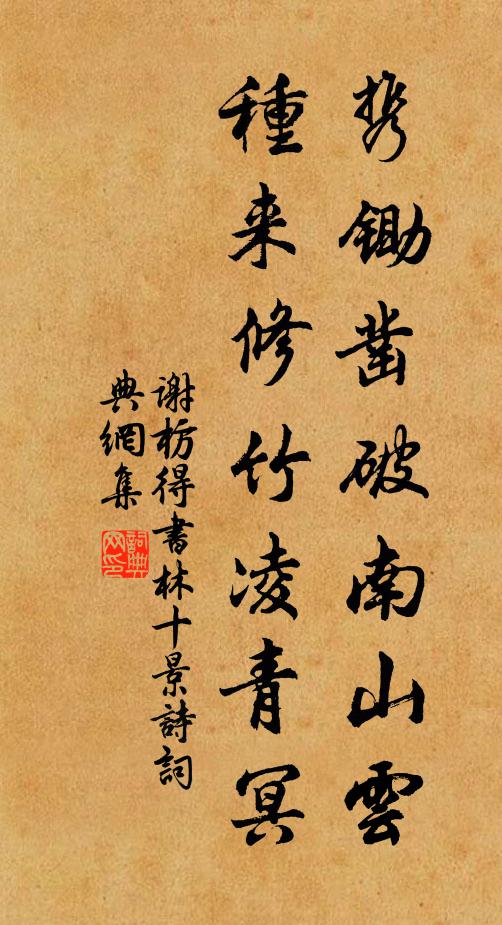 携鋤凿破南山雲
種来修竹凌青冥
谢枋得書林十景詩詞
典網集
詞典网印